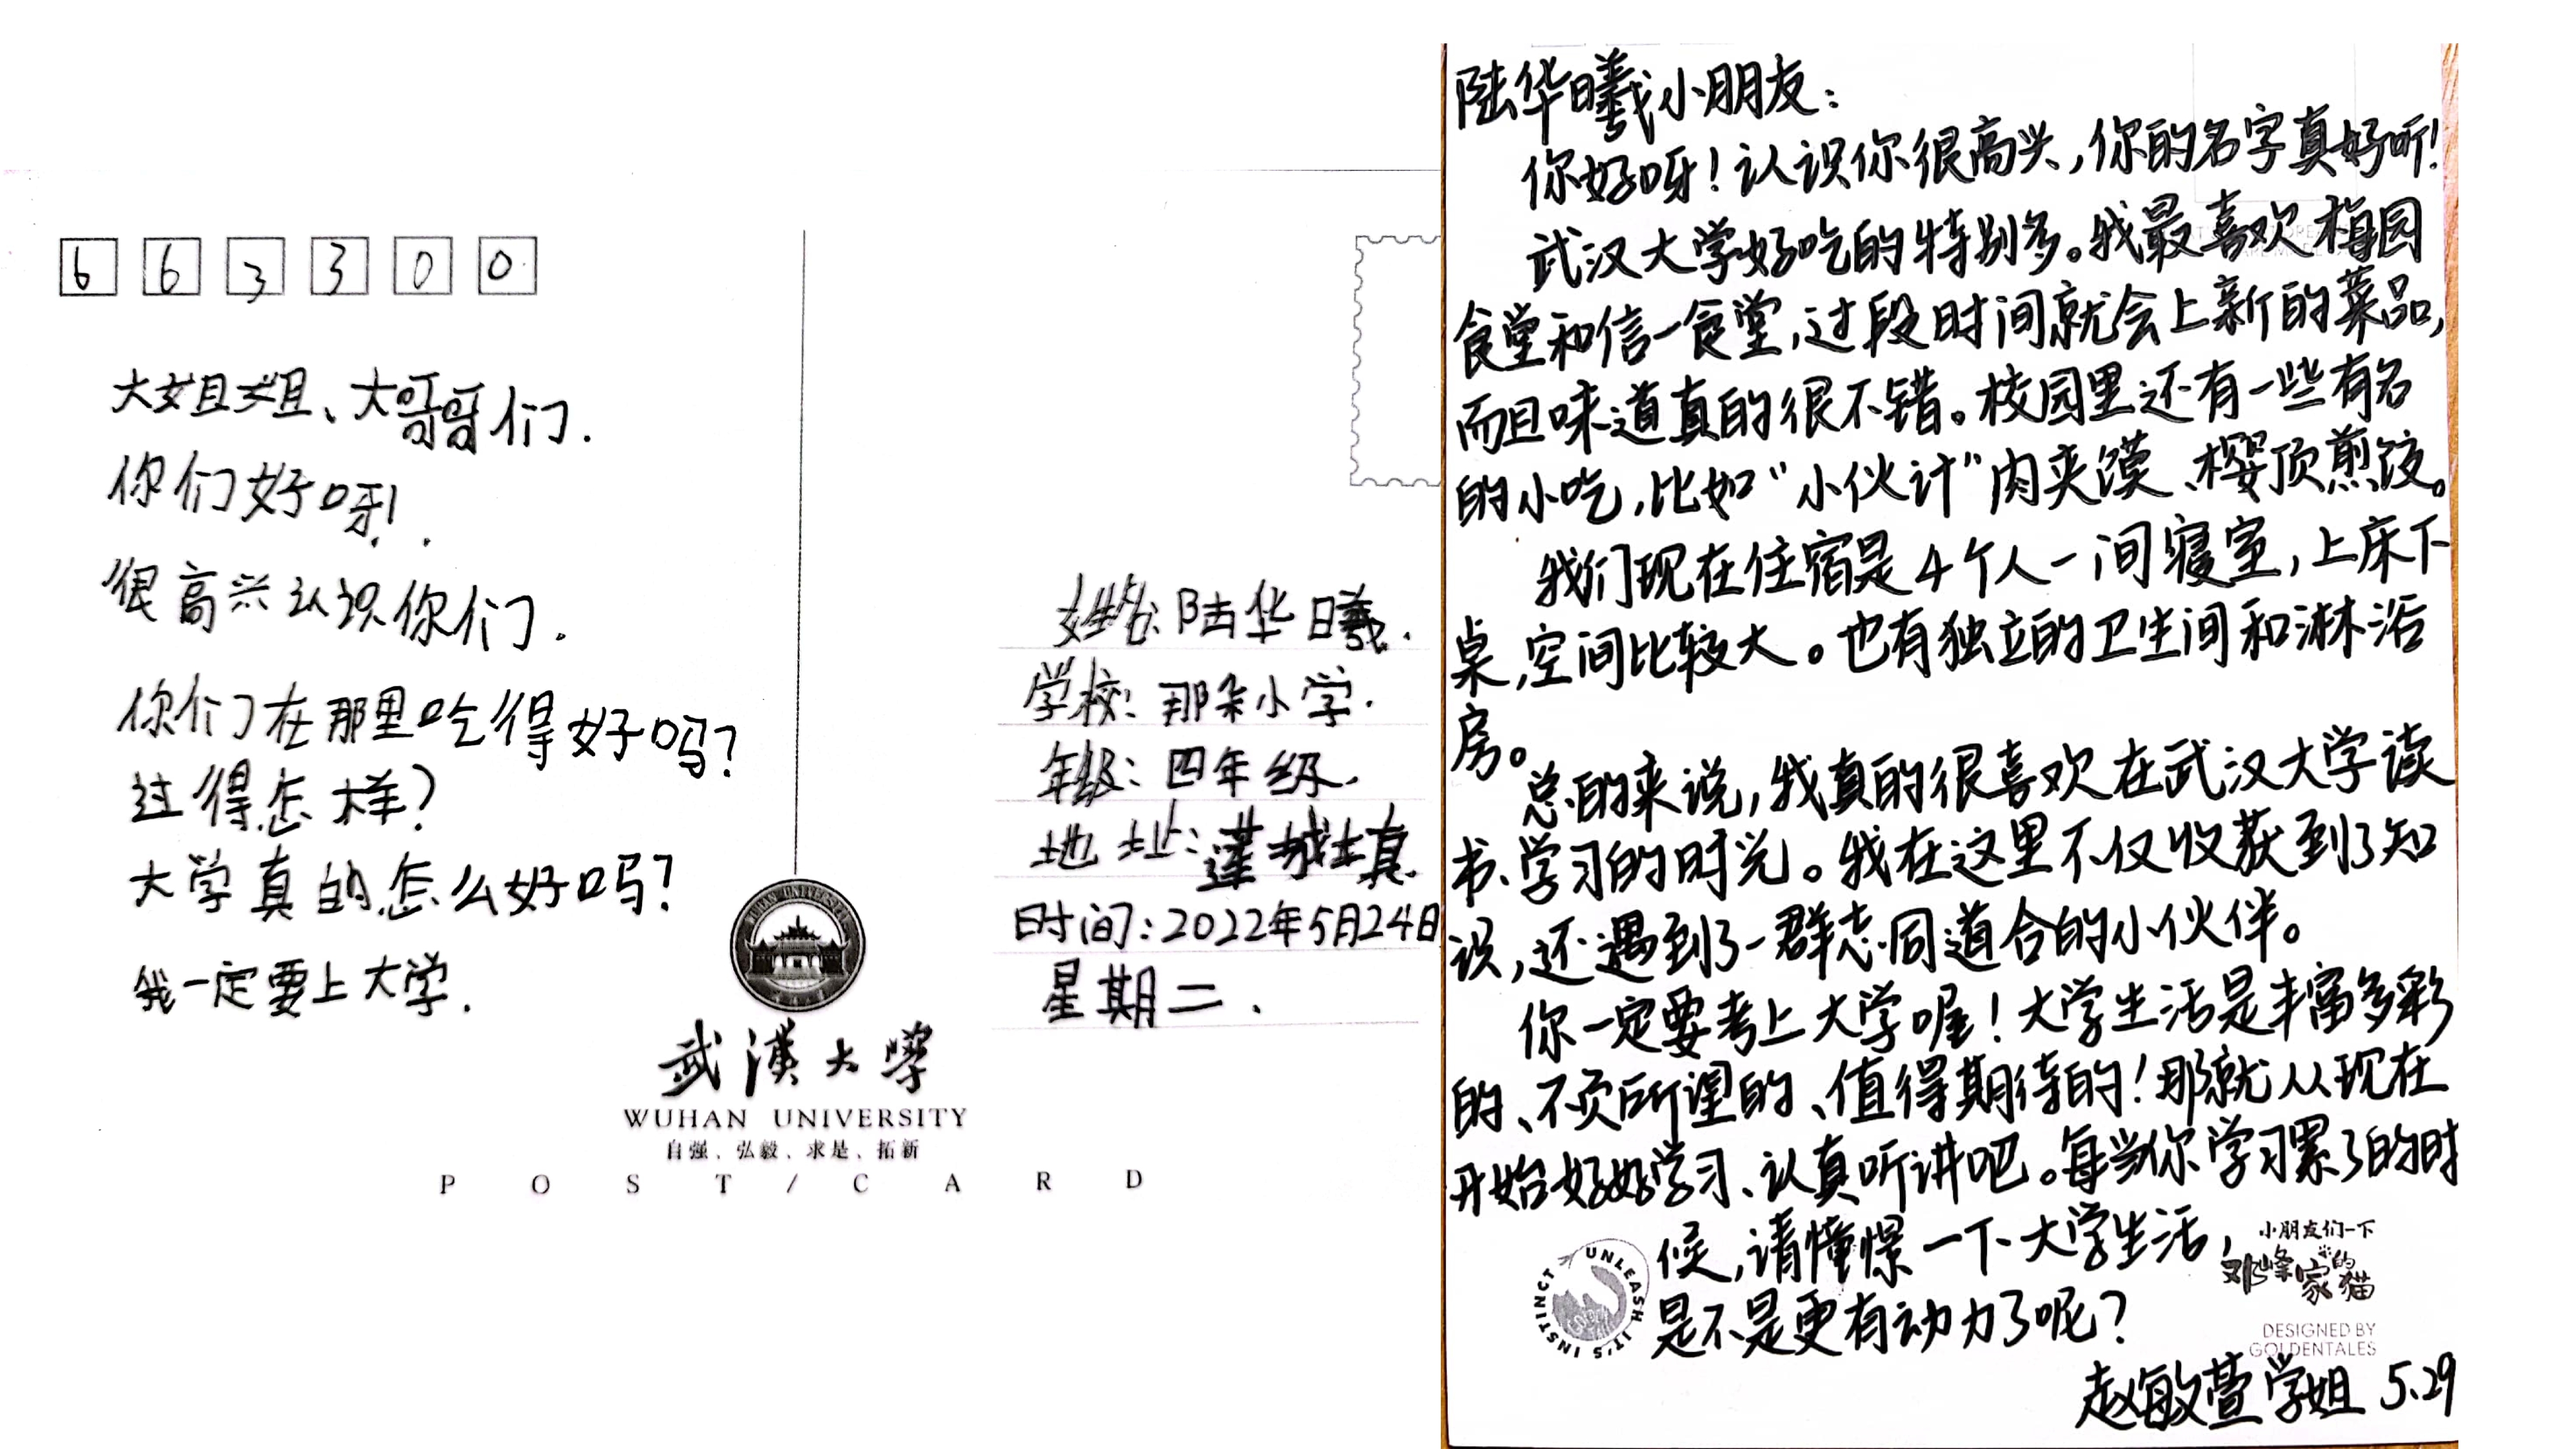 663300
大姐姐、大哥哥们.
你们好呀!
很高兴认识你们.
你们在那里吃得好吗?
过得怎样?
大学真的怎么好吗?
我一定要上大学.
姓名:陆华曦.
学校:那朵小学.
年级:四年级.
地址:莲城镇.
时间:2022年5月24日
星期二.
WUHAN UNIVERSITY
武漢大學
WUHAN UNIVERSITY
自强、弘毅、求是、拓新
POST/CARD
陆华曦小朋友:
你好呀!认识你很高兴,你的名字真好听!
武汉大学好吃的特别多。我最喜欢梅园
食堂和信一食堂,过段时间就会上新的菜品,
而且味道真的很不错。校园里还有一些有名
的小吃,比如“小伙计”肉夹馍、樱顶煎饺。
我们现在住宿是4个人一间寝室,上床下
桌,空间比较大。也有独立的卫生间和淋浴
房。
总的来说,我真的很喜欢在武汉大学读
书、学习的时光。我在这里不仅收获到了知
识,还遇到了一群志同道合的小伙伴。
你一定要考上大学喔!大学生活是丰富多彩
的、不负所望的、值得期待的!那就从现在
开始好好学习、认真听讲吧。每当你学习累了的时
候,请憧憬一下大学生活,
是不是更有动力了呢?
UNLEASH IT'S INSTINCT
小朋友们一下
邓峰家的猫
DESIGNED BY
GOLDENTALES
赵敏萱学姐 5.29